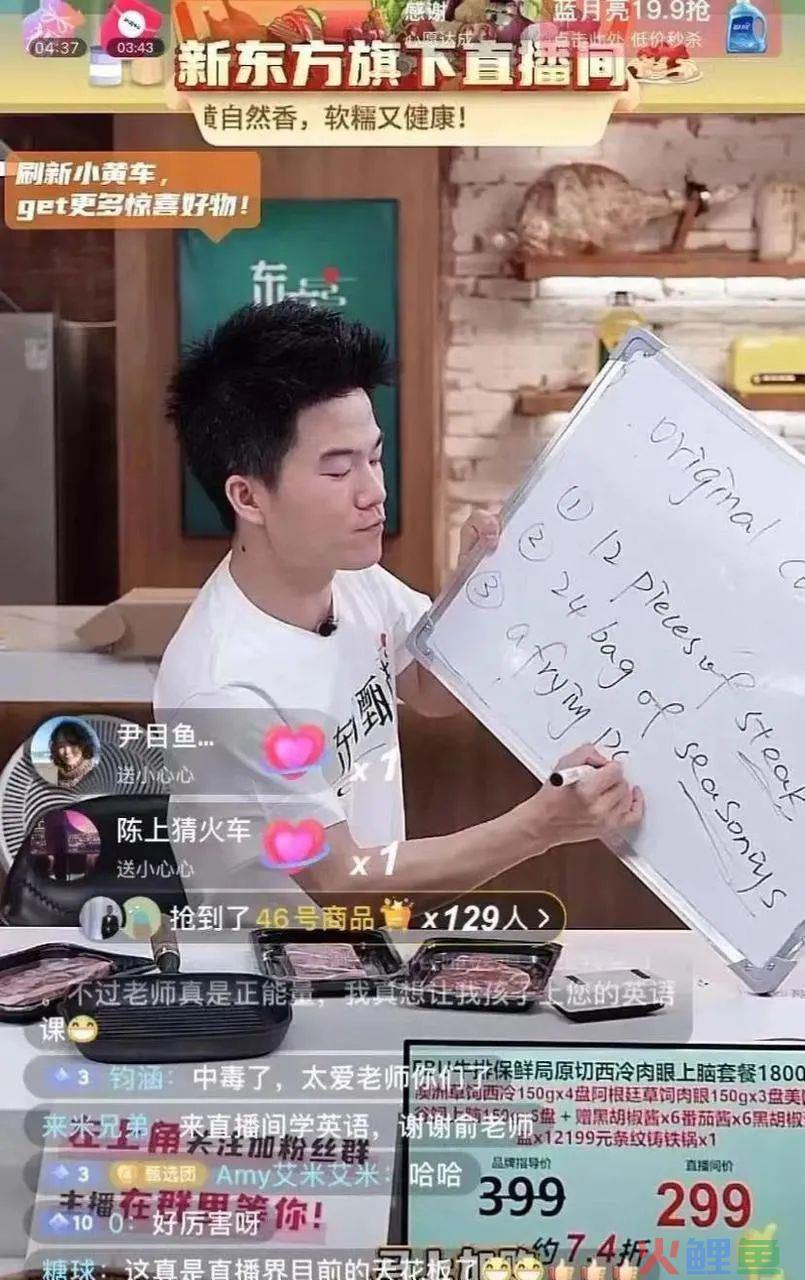 感谢
心愿达成
蓝月亮19.9抢
点击此处 低价秒杀
04:37
03:43
新东方旗下直播间
黄自然香，软糯又健康！
刷新小黄车，
get更多惊喜好物！
original
① 12 pieces of steak
② 24 bag of seasonings
③ a frying
尹目鱼...
送小心心
x1
陈上猜火车
送小心心
x1
抢到了46号商品 x129人 >
不过老师真是正能量，我真想让我孩子上您的英语
课😁
3 钧涵：中毒了，太爱老师你们了
来米兄弟：来直播间学英语，谢谢俞老师
左上角关注加粉丝群
3 甄选团 Amy艾米艾米：哈哈
主播在群里等你！
10 0：好厉害呀
糖球：这真是直播界目前的天花板了😁😁
牛排保鲜局原切西冷肉眼上脑套餐1800
澳洲草饲西冷150gx4盘阿根廷草饲肉眼150gx3盘美
谷饲上脑150gx5盘 + 赠黑胡椒酱x6番茄酱x6黑胡椒
盐x12199元条纹铸铁锅x1
品牌指导价
直播间价
399
299
约7.4折
火鲤鱼